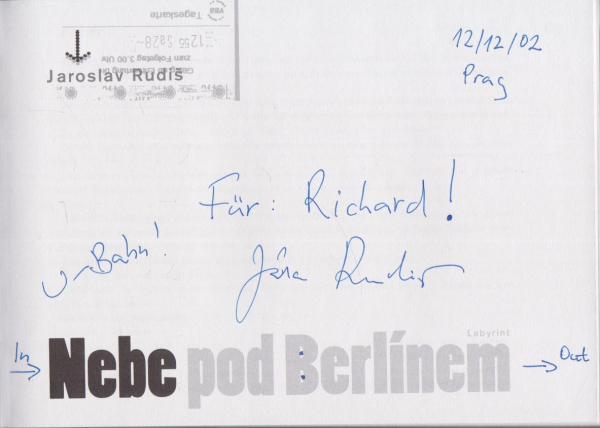 Tageskarte
1255 Sa28~
zum Folgetag 3.00 Uhr
Jaroslav Rudiš
12/12/02
Prag
Für: Richard!
U-Bahn!
Jára Rudiš
Labyrint
In
Nebe pod Berlínem
Out